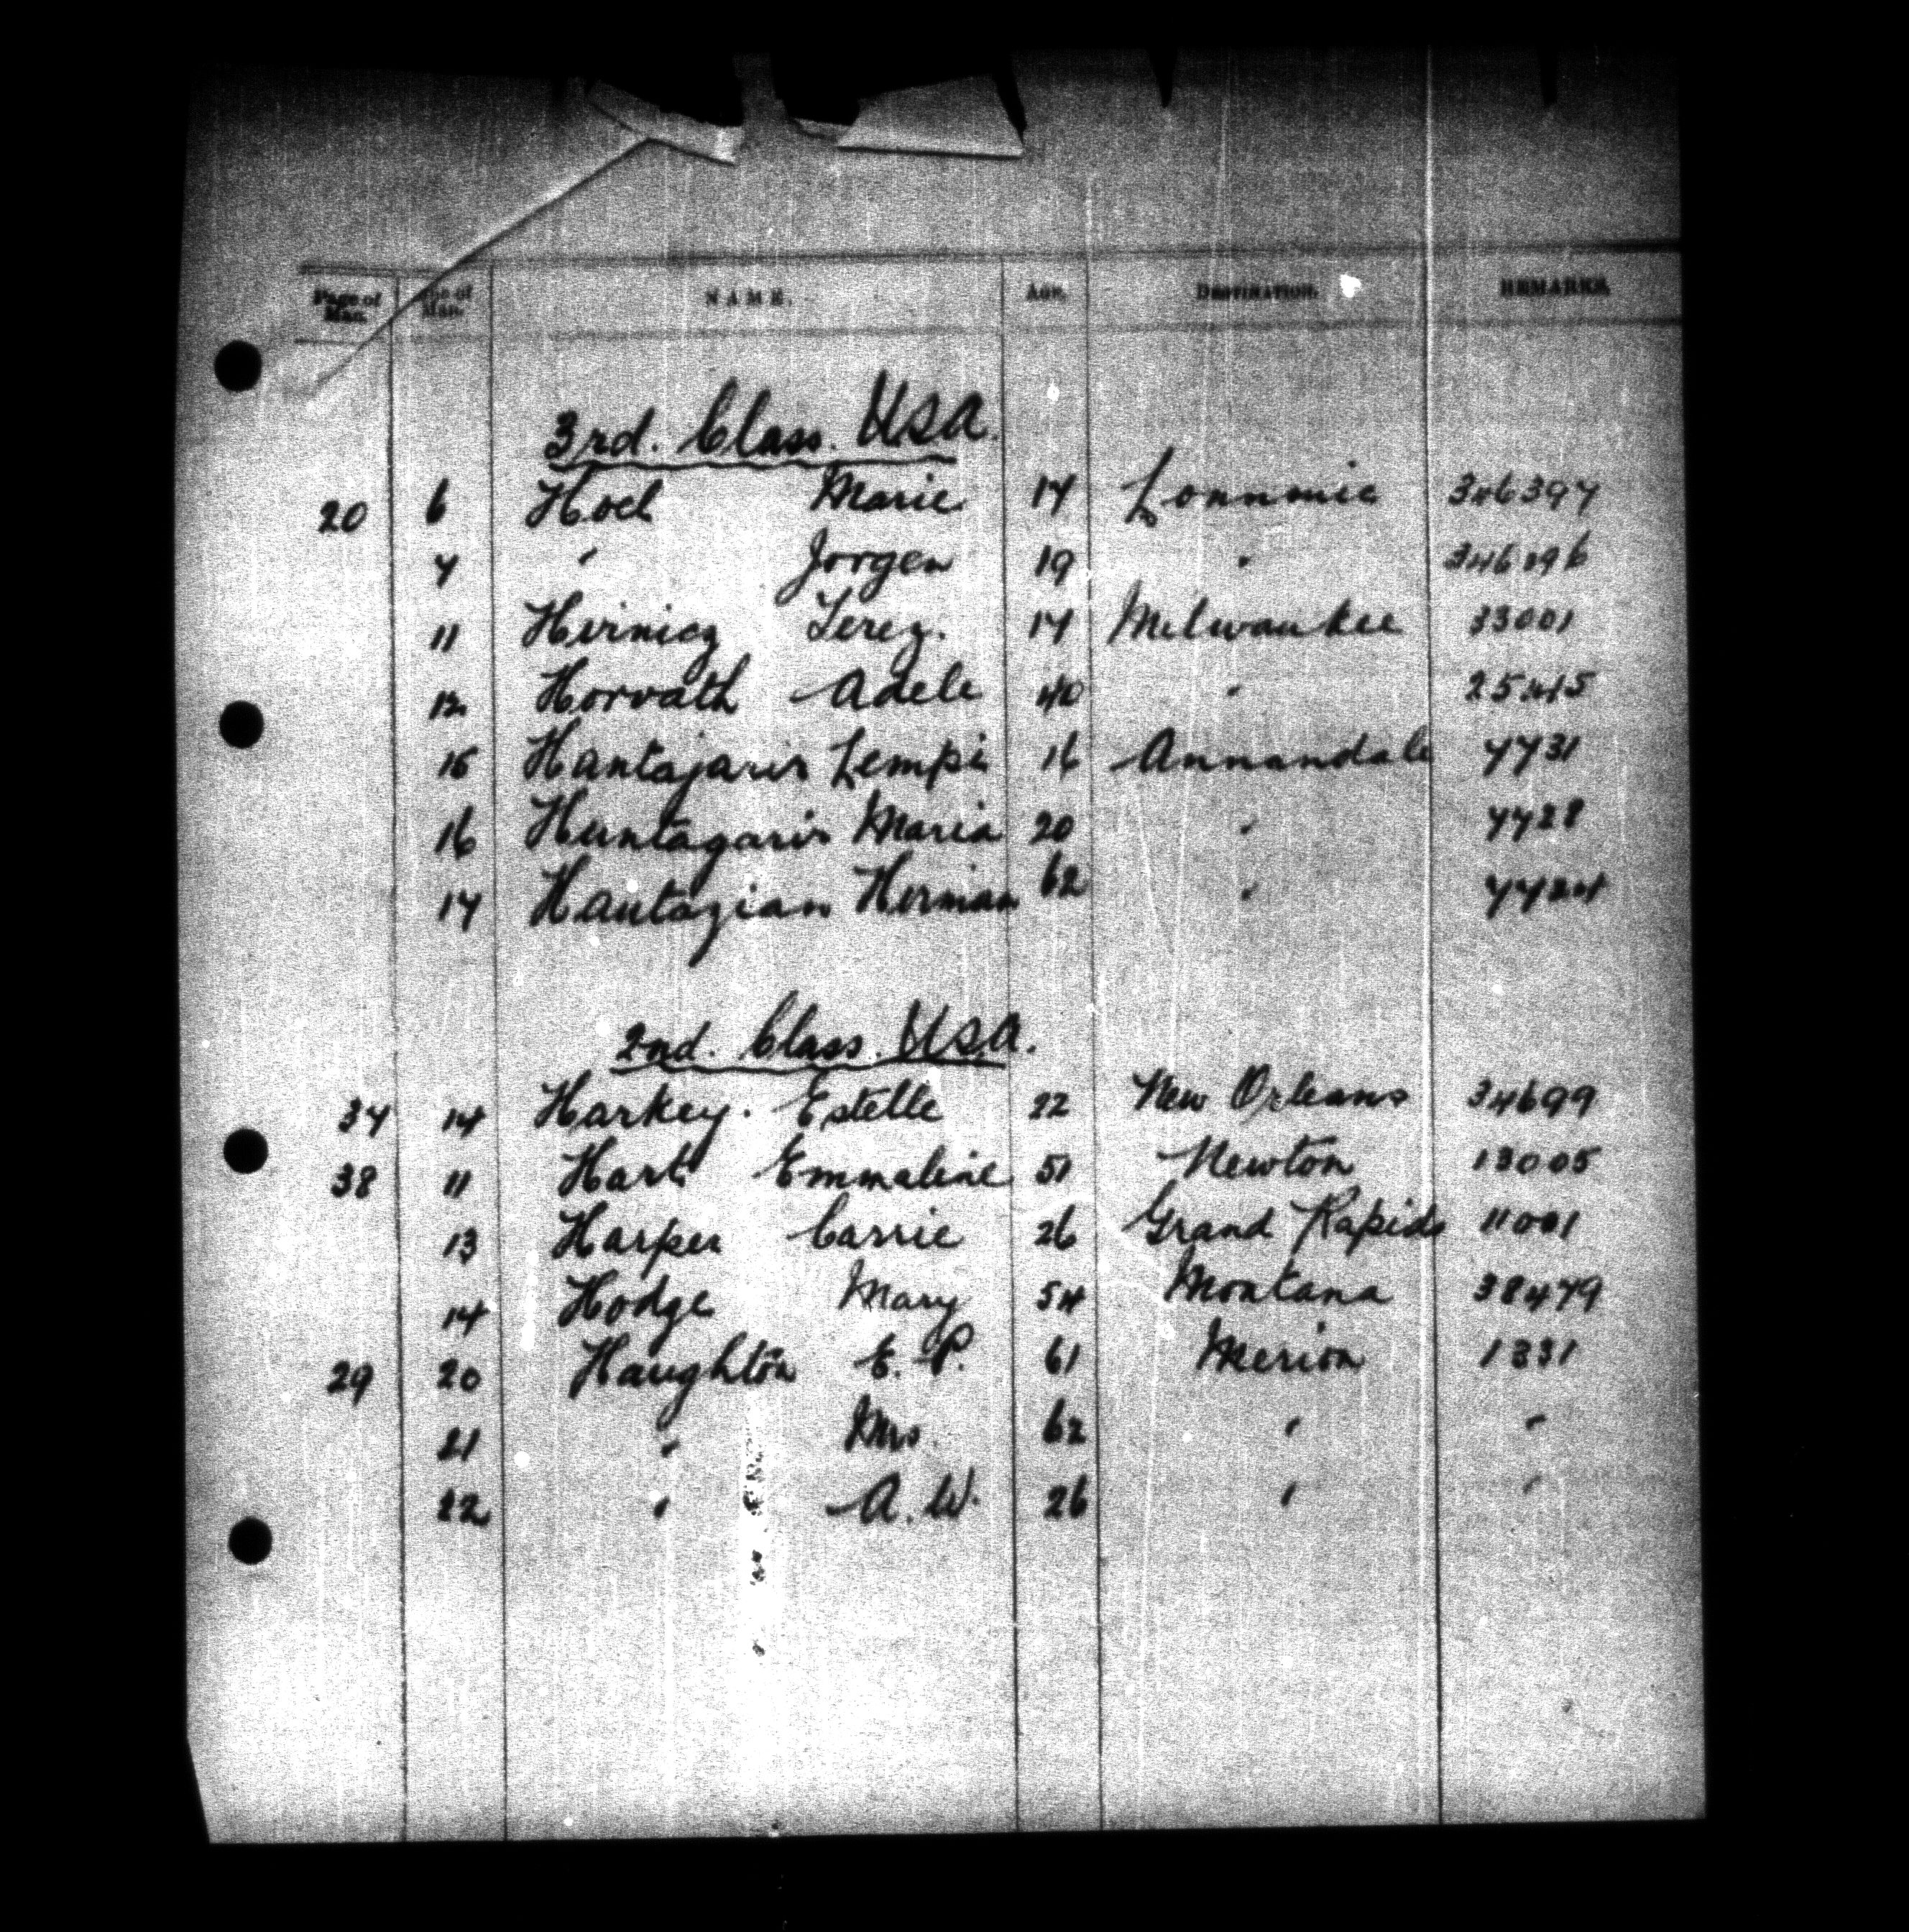 Page of Man. Line of Man. NAME. Age. DESTINATION. REMARKS.
3rd. Class. USA.
20 6 Hoel Marie 17 346397
7 " Jorgen 19 "
11 Terez. 17 Milwaukee 33001
12 Horvath Adele 40 " 25415
15 Lempi 16 Annandale 7731
16 Maria 20 " 7728
17 Herman 62 " 7724
2nd. Class. USA.
37 14 Harkey. Estelle 22 New Orleans 34699
38 11 Hart Emmaline 51 Newton 13005
13 Harper Carrie 26 Grand Rapids 11001
14 Hodge Mary 54 Montana 38479
29 20 Haughton E. P. 61 Merion 1331
21 " Mrs. 62 " "
22 " A. W. 26 " "